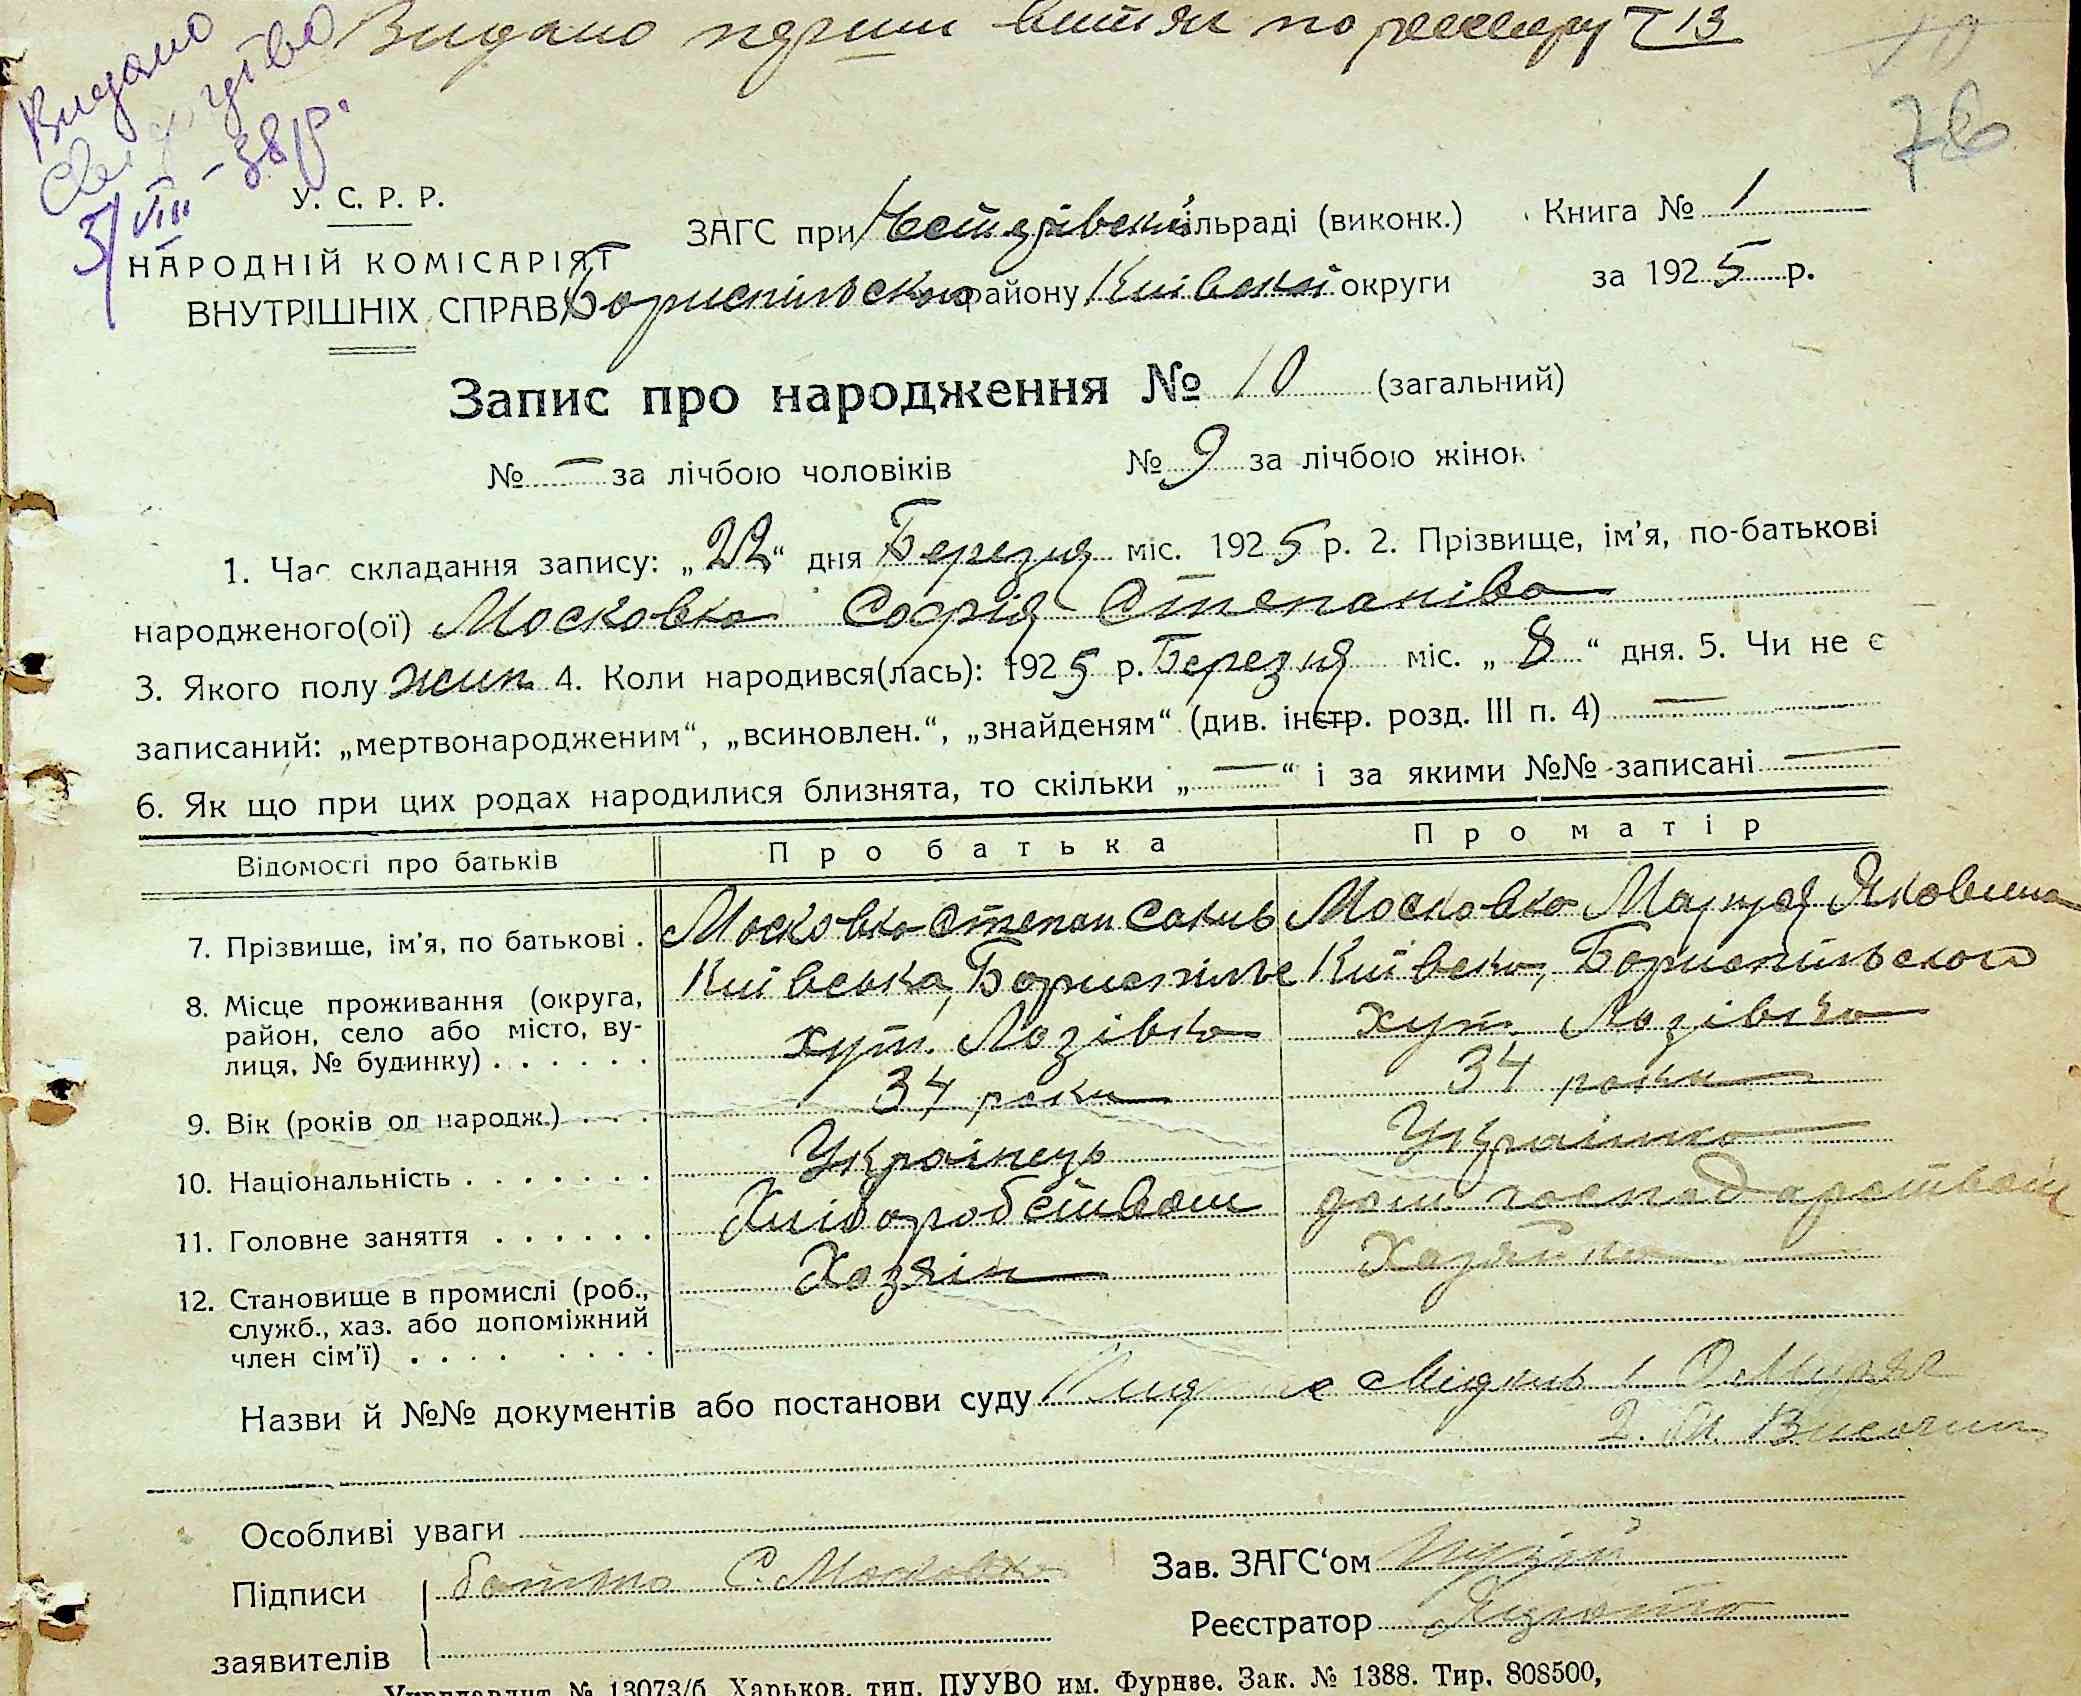 Видано
7в
У. С. Р. Р.
НАРОДНІЙ КОМІСАРІЯТ
ВНУТРІШНІХ СПРАВ
3/VIII – 38 р.
ЗАГС при сільраді (виконк.) Книга № 1
Бориспільського району Київської округи за 1925 р.
Запис про народження № 10 (загальний)
№ — за лічбою чоловіків № 9 за лічбою жінок
1. Час складання запису: „22“ дня Березня міс. 1925 р. 2. Прізвище, ім’я, по-батькові
народженого(ої) Московко Софія Степанівна
3. Якого полу жін. 4. Коли народився(лась): 1925 р. Березня міс. „8“ дня. 5. Чи не є
записаний: „мертвонародженим“, „всиновлен.“, „знайденям“ (див. інстр. розд. III п. 4) —
6. Як що при цих родах народилися близнята, то скільки „—“ і за якими №№ записані —
Відомості про батьків Про батька Про матір
7. Прізвище, ім’я, по батькові . Московко Степан Московко Маруся Яковлевна
8. Місце проживання (округа, Київська, Бориспільс Київська, Бориспільського
район, село або місто, ву- хут. Лозівка хут. Лозівка
лиця, № будинку) . . . . . .
9. Вік (років од народж.) . . . . 34 роки 34 роки
10. Національність . . . . . . . Українець Українка
11. Головне заняття . . . . . . Хліборобством дом. господарством
12. Становище в промислі (роб., Хазяїн Хазяйка
служб., хаз. або допоміжний
член сім’ї) . . . . . . . .
Назви й №№ документів або постанови суду
Особливі уваги
Підписи батько С. Московко Зав. ЗАГС‘ом
заявителів Реєстратор
Укрглавлит № 13073/б. Харьков, тип. ПУУВО им. Фрунзе. Зак. № 1388. Тир. 808500,